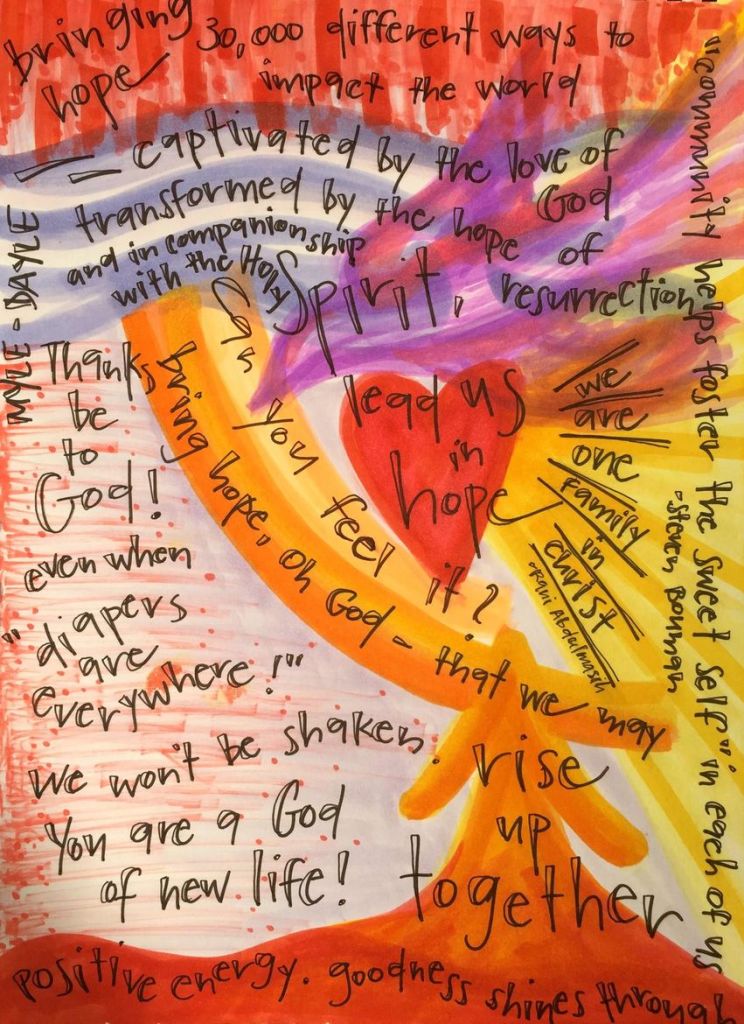 bringing
hope
30,000 different ways to
impact the world
— captivated by the love of
God
transformed by the hope of
resurrection
and in companionship
with the Holy
Spirit,
lead us
in
hope
Can you feel it?
Thanks
be
to
God!
even when
"diapers
are
everywhere!"
we won't be shaken.
You are a God
of new life!
bring hope, oh God - that we may
rise
up
together
we
are
one
Family
in
christ
-Ravi Abdulmasih
"community helps foster the sweet self" in each of us
-Steven Bouman
positive energy. goodness shines through